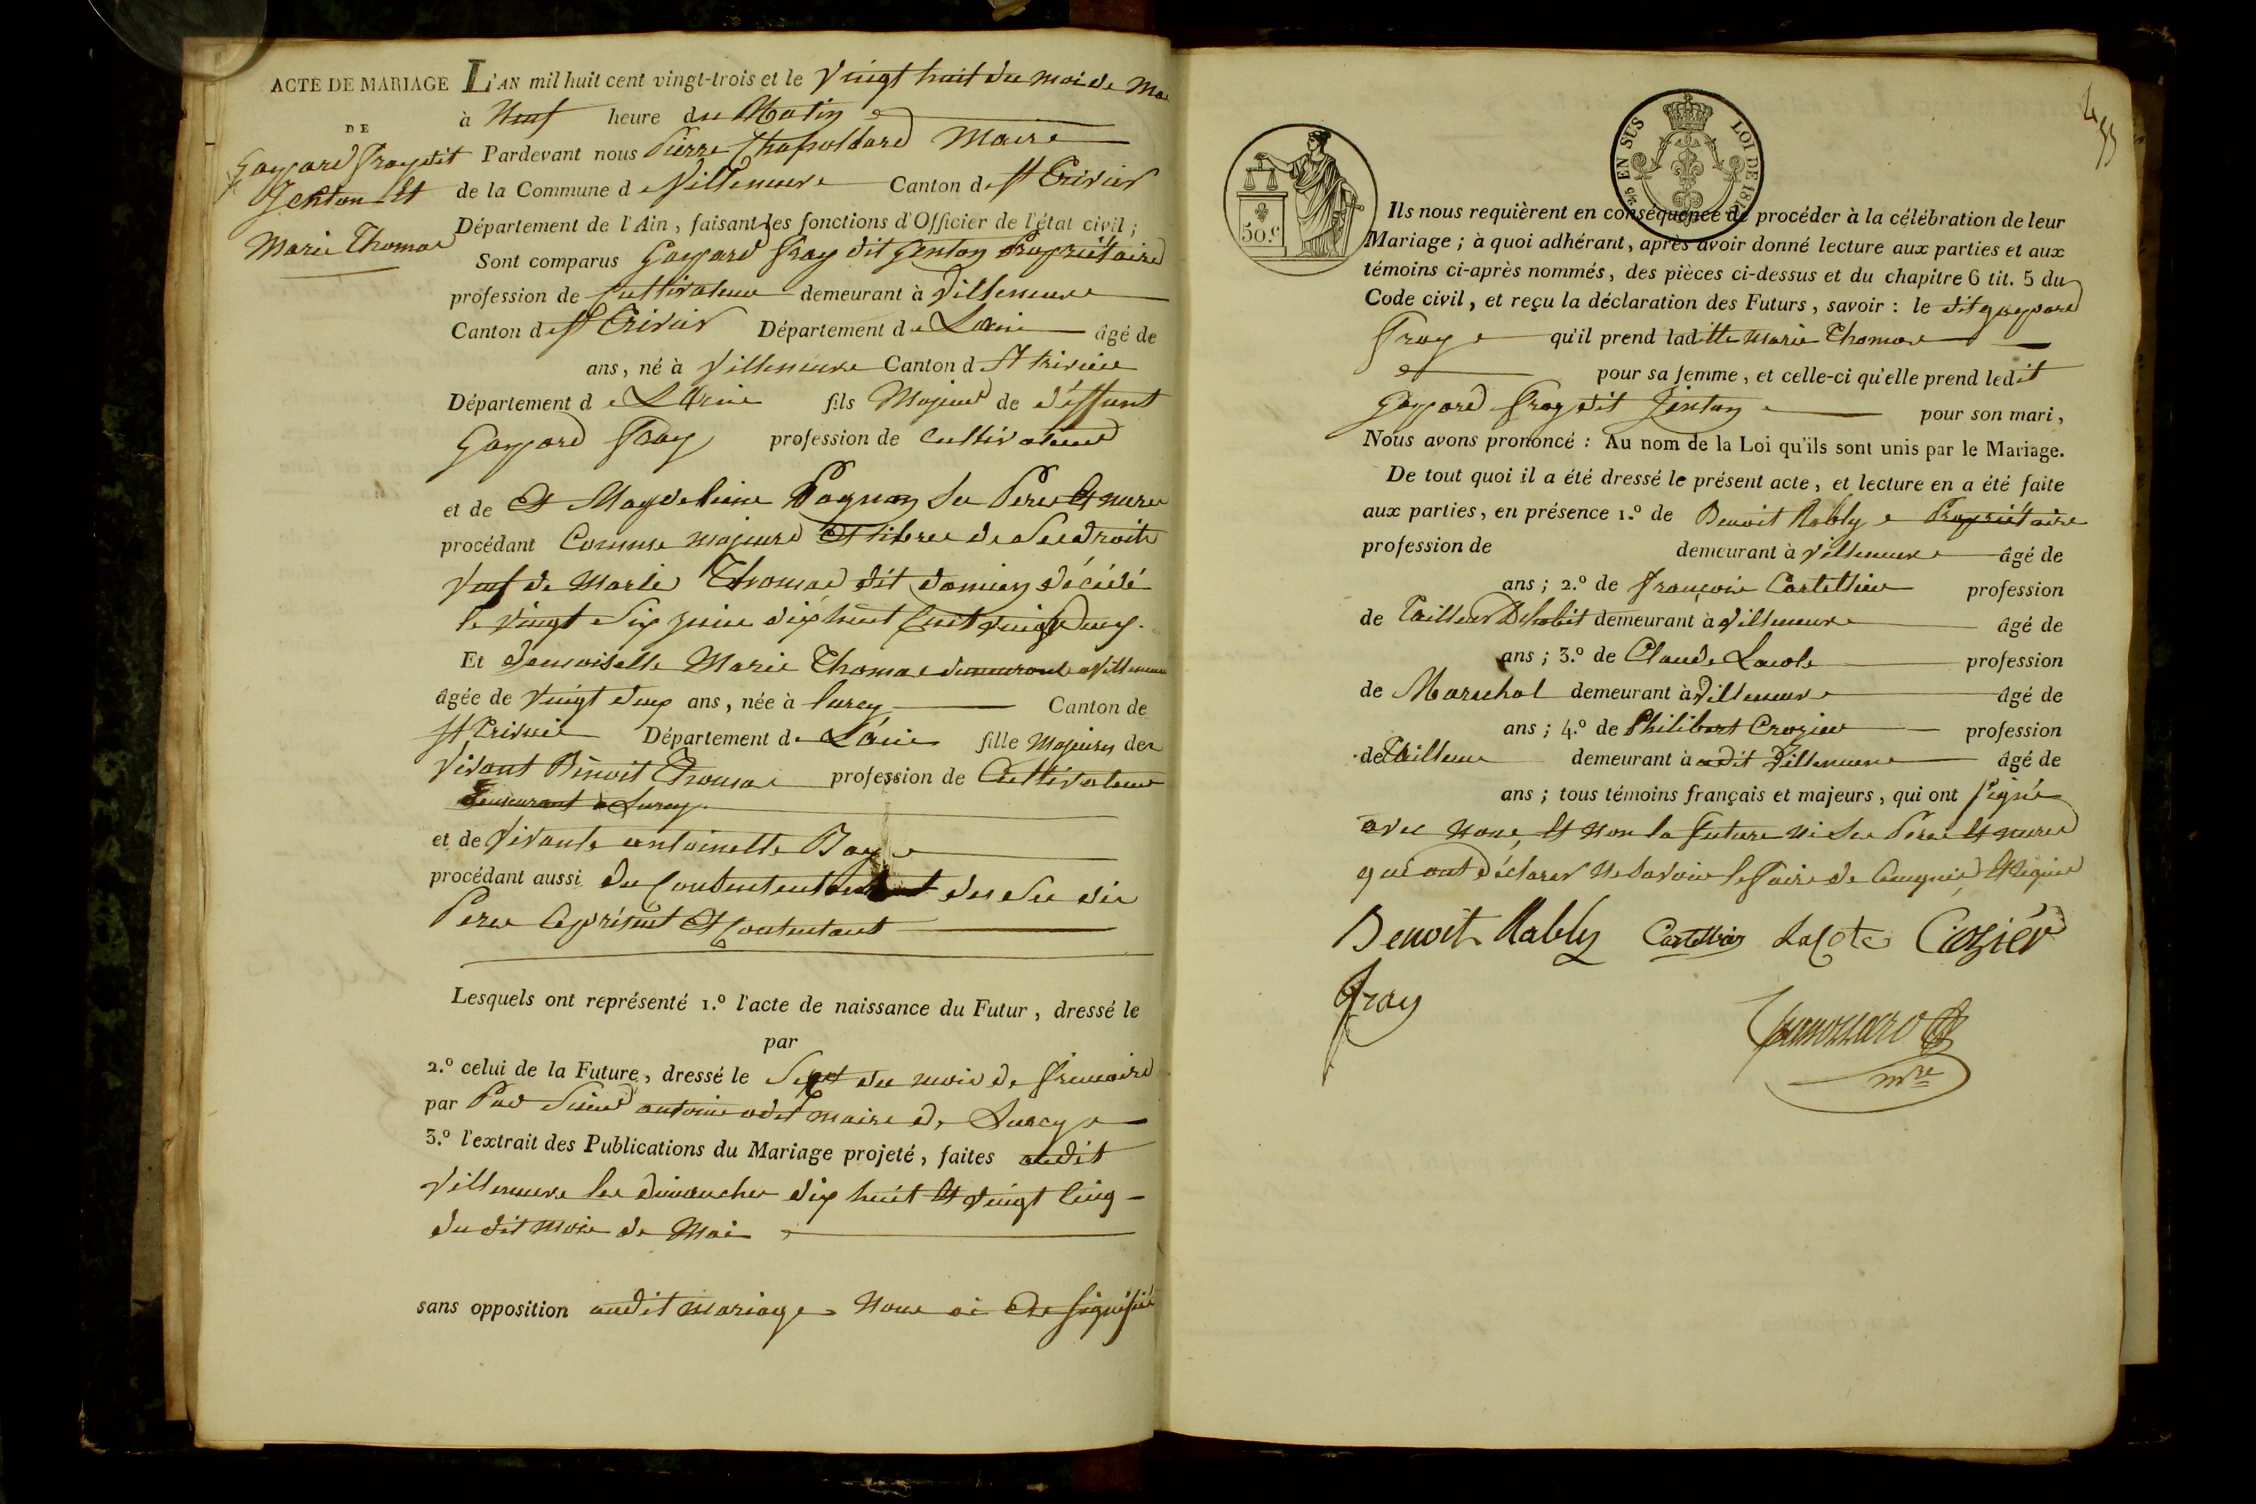 ACTE DE MARIAGE
DE
Gaspard Fray dit
Jenton Et
Marie Thomas
L'AN mil huit cent vingt-trois et le vingt huit du moi de Mai
à Neuf heure du Matin
Pardevant nous Pierre Maire
de la Commune de Villeneuve Canton de St Trivier
Département de l'Ain, faisant les fonctions d'Officier de l'état civil;
Sont comparus Gaspard Fray dit Genton Propriétaire
profession de Cultivateur demeurant à Villeneuve
Canton de St Trivier Département de Lain âgé de
ans, né à Villeneuve Canton d St trivier
Département de LAin fils Majeur de déffunt
Gaspard Fray profession de Cultivateur
et de Et Magdeleine Pagnon Ses Peres Et meres
procédant Comme majeur Et libre de Ses droits
Veuf de Marie Thomas dit damien décédé
le vingt Six juin dix huit Cent vingt deux
Et demoiselle Marie Thomas demeurant a Villeneuve
âgée de vingt deux ans, née à Lurcy Canton de
St Trivier Département de Lain fille Majeure de
Vivant Benoit Thomas profession de Cultivateur
demeurant a Lurcy
et de Vivante antoinette Bay
procédant aussi du Consentement des Ses dis
Peres Ce présent Et Consentant
Lesquels ont représenté 1.º l'acte de naissance du Futur, dressé le
par
2.º celui de la Future, dressé le Sept du mois de frimaire
par Par Sieur antoine maire de Lurcy
3.º l'extrait des Publications du Mariage projeté, faites audit
Villeneuve les dimanches dix huit Et vingt Cinq
du dit mois de Mai
sans opposition audit mariage Nous ai Ete Signifié
50.c
EN SUS
LOI DE 1816
Ils nous requièrent en conséquence de procéder à la célébration de leur
Mariage; à quoi adhérant, après avoir donné lecture aux parties et aux
témoins ci-après nommés, des pièces ci-dessus et du chapitre 6 tit. 5 du
Code civil, et reçu la déclaration des Futurs, savoir: le dit gaspard
Fray qu'il prend laditte Marie Thomas
pour sa femme, et celle-ci qu'elle prend ledit
Gaspard Fray dit Jenton pour son mari,
Nous avons prononcé: Au nom de la Loi qu'ils sont unis par le Mariage.
De tout quoi il a été dressé le présent acte, et lecture en a été faite
aux parties, en présence 1.º de Benoit Rably Propriétaire
profession de demeurant à Villeneuve âgé de
ans; 2.º de françois Cartellier profession
de Tailleur D'habit demeurant à Villeneuve âgé de
ans; 3.º de Claude Lacote profession
de Marechal demeurant à Villeneuve âgé de
ans; 4.º de Philibert Crozier profession
de Tailleur demeurant à audit Villeneuve âgé de
ans; tous témoins français et majeurs, qui ont Signé
avec Nous, Et Non la future Ni Ses Peres Et meres
qui ont déclarer Ne Savoir le faire de Enquis Et Requis
Benoit Rably Cartellier LaCote Crozier
Fray
mre